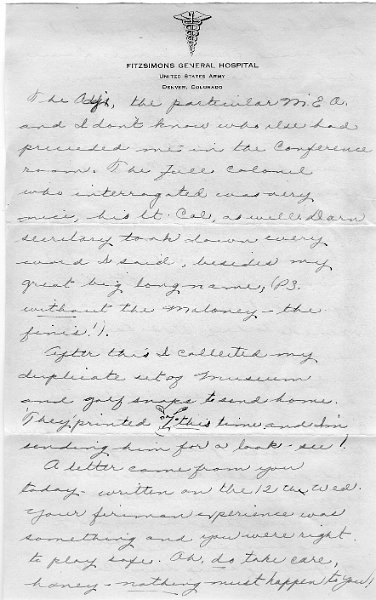 FITZSIMONS GENERAL HOSPITAL
UNITED STATES ARMY
DENVER, COLORADO
The Adj's, the particular M.E.O.
and I don't know who else had
preceeded me in the Conference
room. The full colonel
who interrogated was very
nice, his Lt. Col. as well. Darn
secretary took down every
word I said, besides my
great big long name, (P3.
without the Maloney - the
finis!).
After this I collected my
duplicate set of Museum
and golf snaps to send home.
They printed this time and I'm
sending him for a look-see!
A letter came from you
today - written on the 12th, Wed.
Your fireman experience was
something and you were right
to play safe. Oh, do take care,
honey - nothing must happen to you,